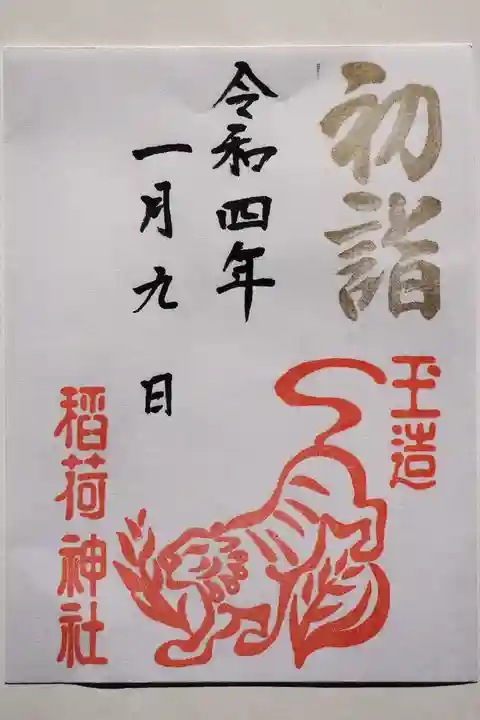 初詣
玉造
令和四年
一月九日
稻荷神社